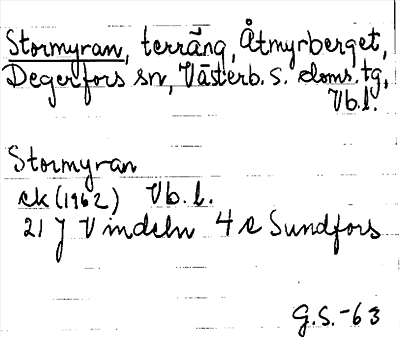 Stormyran, terräng, Åtmyrberget,
Degerfors sn, Västerb. s. doms. tg,
Vb. l.
Stormyran
ek (1962) Vb. l.
21 J Vindeln 4 e Sundfors
G.S. -63